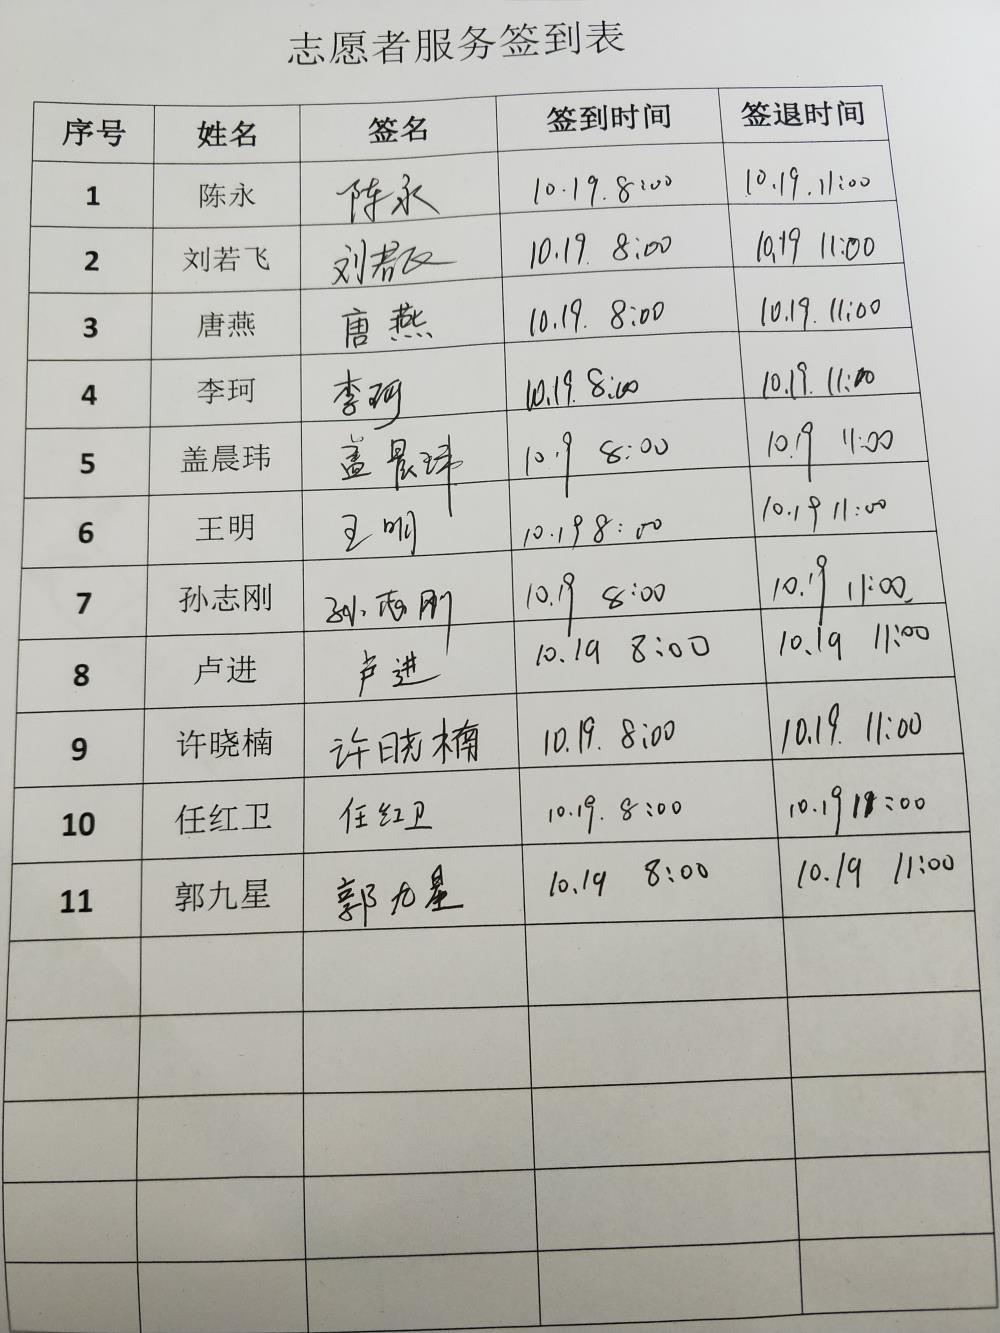 志愿者服务签到表
序号 姓名 签名 签到时间 签退时间
1 陈永 陈永 10.19. 8:00 10.19. 11:00
2 刘若飞 刘若飞 10.19. 8:00 10.19 11:00
3 唐燕 唐燕 10.19. 8:00 10.19. 11:00
4 李珂 李珂 10.19. 8:00 10.19. 11:00
5 盖晨玮 盖晨玮 10.19 8:00 10.19 11:00
6 王明 王明 10.19 8:00 10.19 11:00
7 孙志刚 孙志刚 10.19 8:00 10.19 11:00
8 卢进 卢进 10.19 8:00 10.19 11:00
9 许晓楠 许晓楠 10.19. 8:00 10.19. 11:00
10 任红卫 任红卫 10.19. 8:00 10.19 11:00
11 郭九星 郭九星 10.19 8:00 10.19 11:00